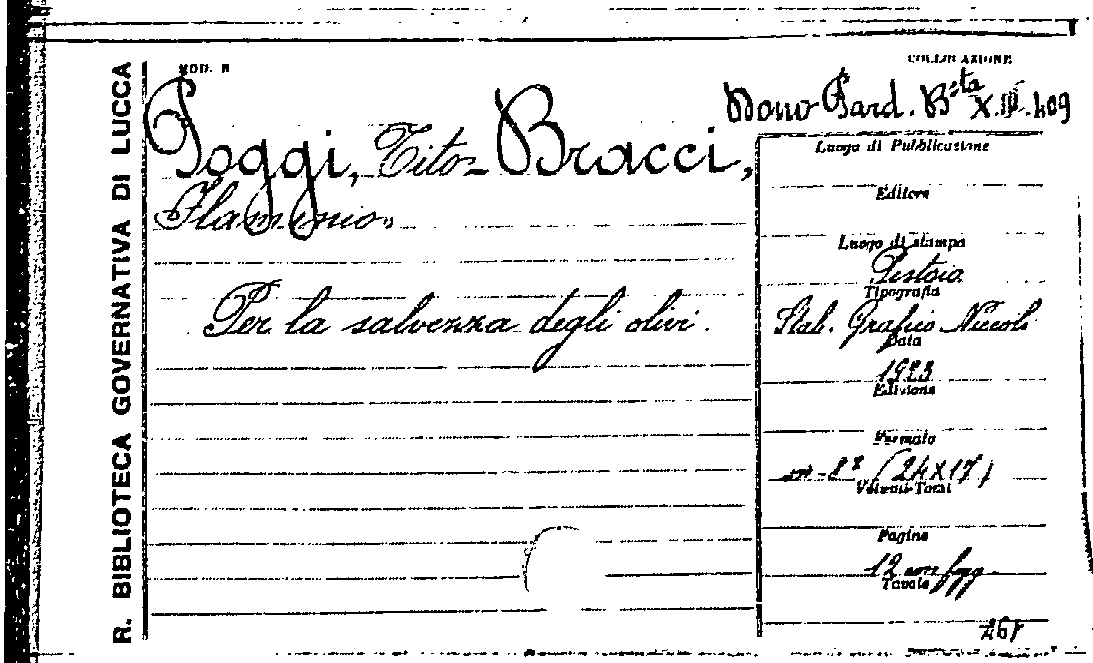 R. BIBLIOTECA GOVERNATIVA DI LUCCA
MOD. B
COLLOCAZIONE
Dono Pard. B.sta X.III.409
Poggi, Tito - Bracci,
Flaminio.
Per la salvezza degli olivi.
Luogo di Pubblicazione
Editore
Luogo di stampa
Pistoia
Tipografia
Stab. Grafico Niccoli
Data
1923
Edizione
Formato
in-8° (24X17)
Volumi-Tomi
Pagine
12 con fgg.
Tavole